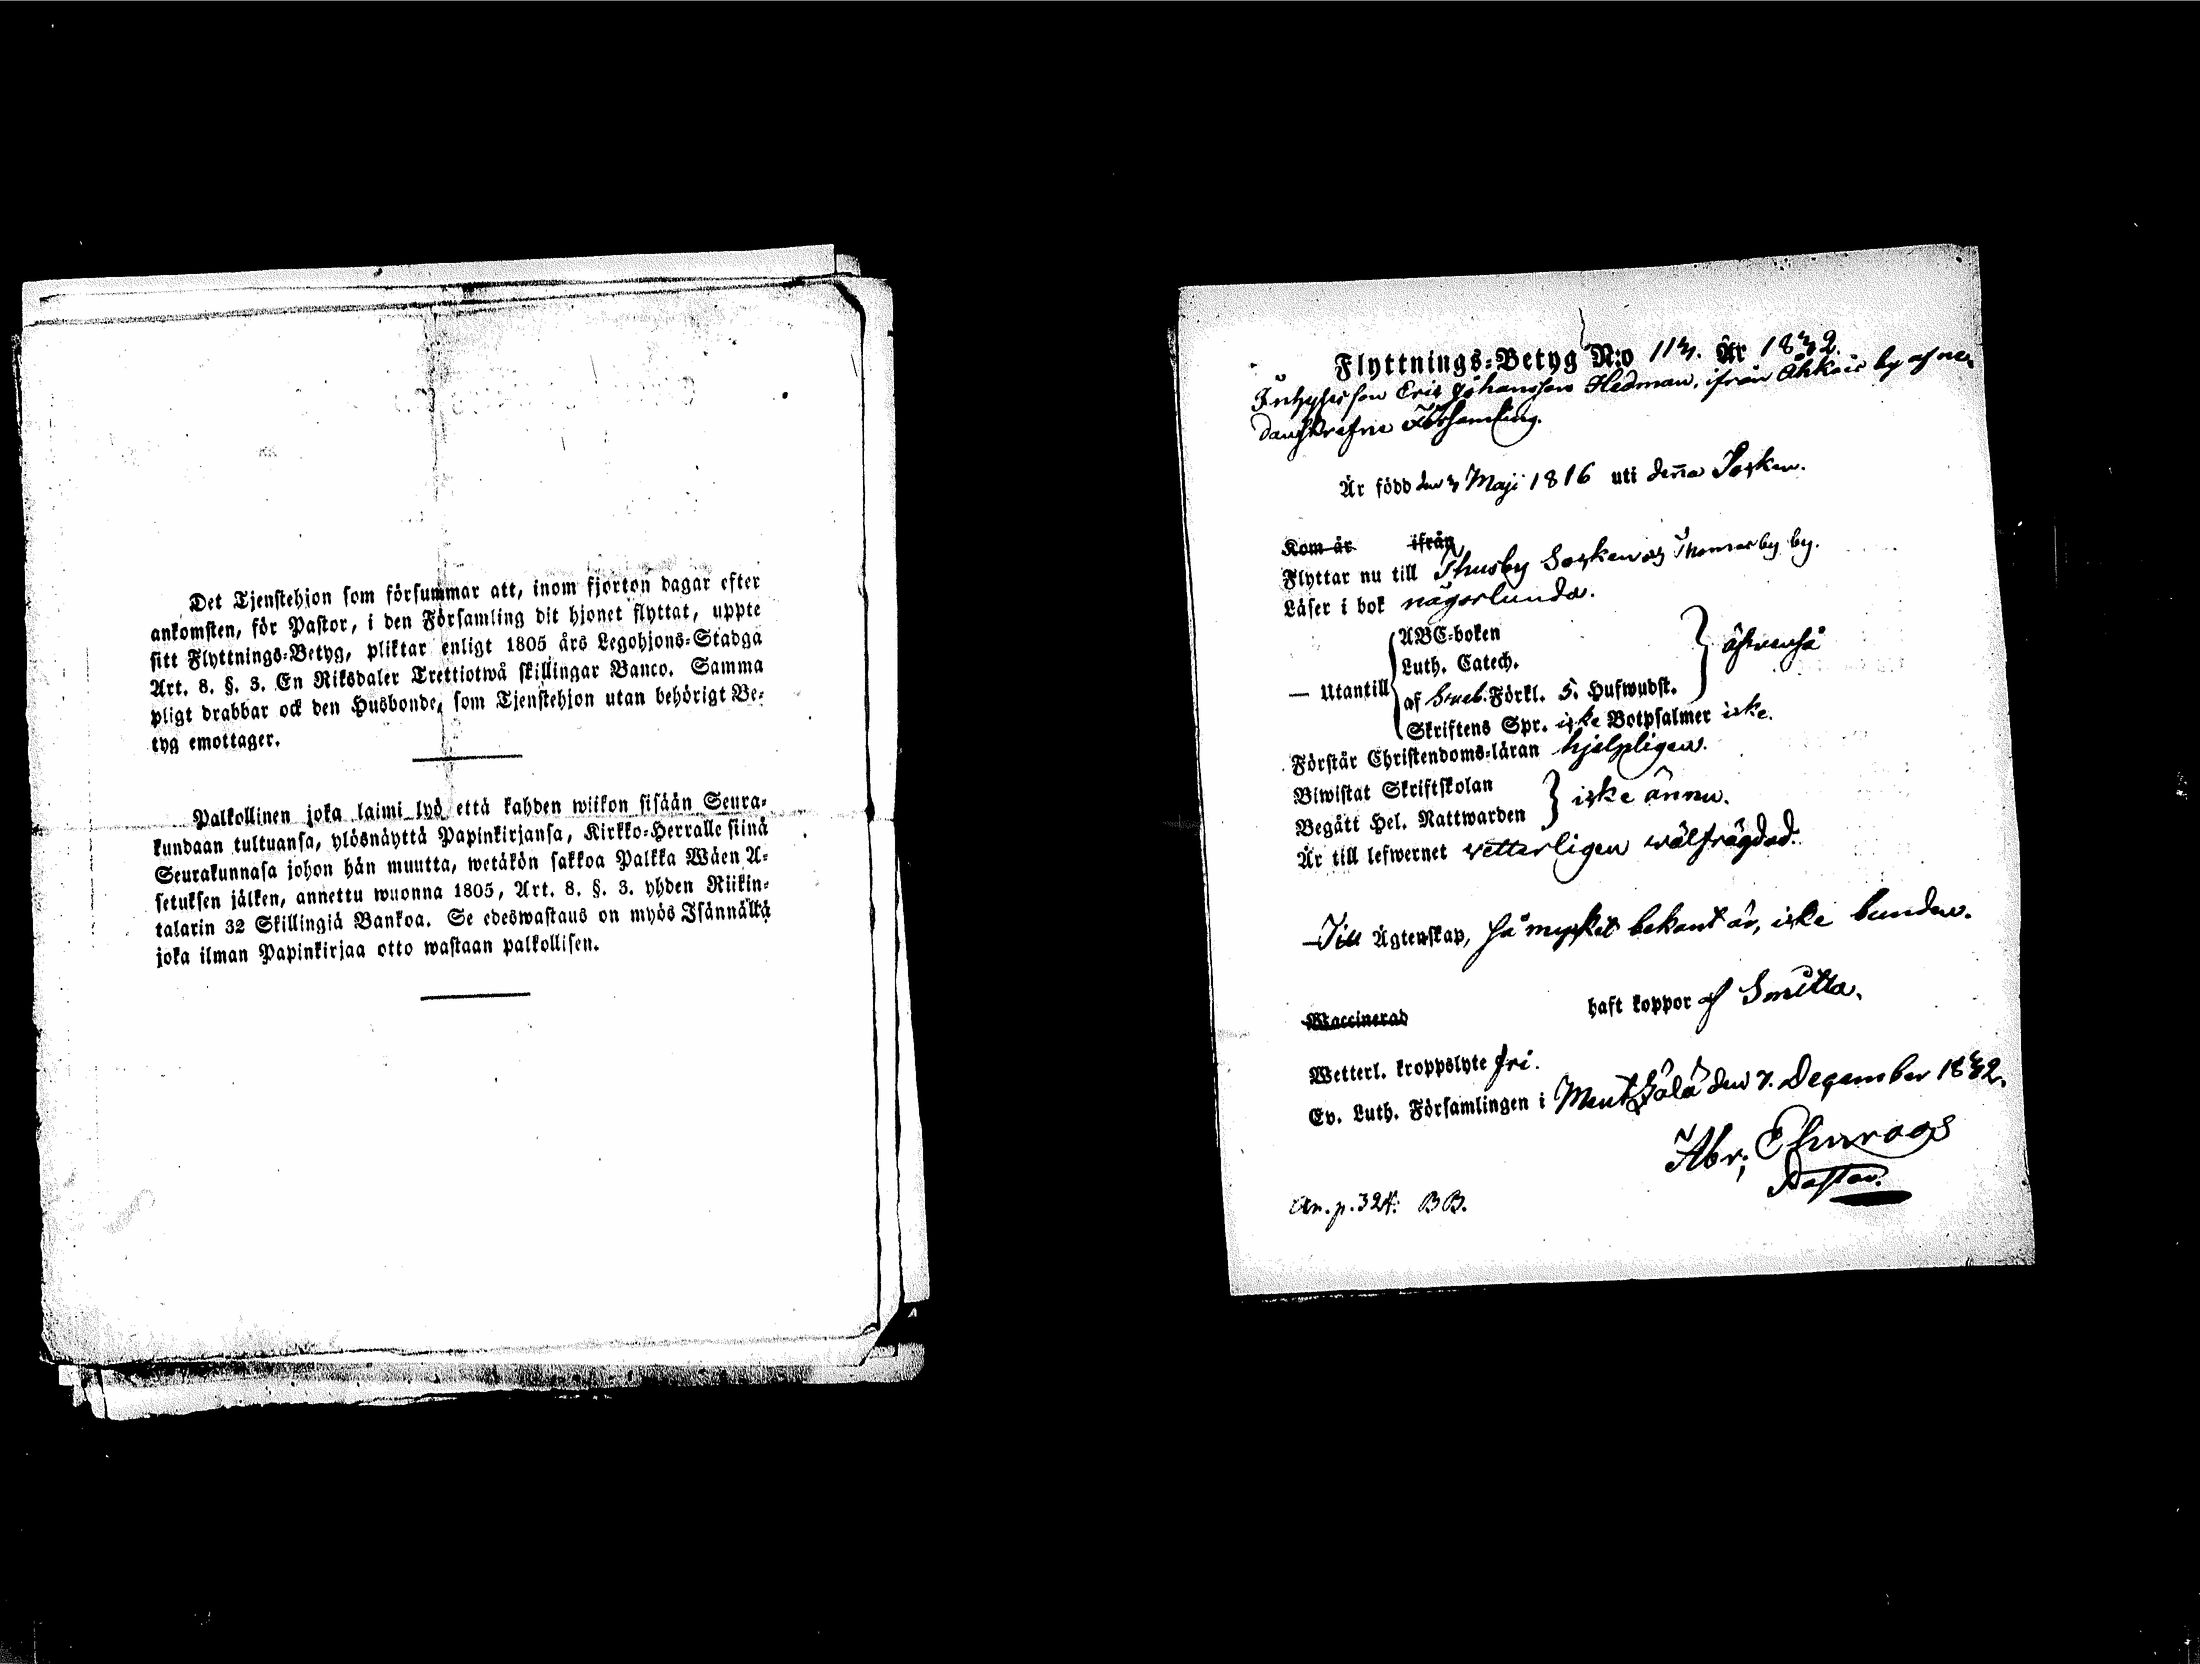 Det Tjenstehjon som försummar att, inom fjorton dagar efter
ankomsten, för Pastor, i den Församling dit hjonet flyttat, uppte
sitt Flyttnings-Betyg, pliktar enligt 1805 års Legohjons-Stadga
Art. 8. §. 3. En Riksdaler Trettiotwå skillingar Banco. Samma
pligt drabbar ock den Husbonde, som Tjenstehjon utan behörigt Be-
tyg emottager.
Palkollinen joka laimi lyö että kahden wiikon sisään Seura-
kundaan tultuansa, ylösnäyttä Papinkirjansa, Kirkko-Herralle siinä
Seurakunnasa johon hän muutta, wetäkön sakkoa Palkka Wäen A-
setuksen jälken, annettu wuonna 1805, Art. 8. §. 3. yhden Riikin-
talarin 32 Skillingiä Bankoa. Se edeswastaus on myös Isännällä
joka ilman Papinkirjaa otto wastaan palkollisen.
Flyttnings-Betyg N:o 113. År 1832.
Inhyses son Eric Johansson Hedman, ifrån by af ne-
danskrefne Församling.
Är född den 3 Maji 1816 uti denna Socken.
Kom år ifrån
Flyttar nu till Thusby Socken och Thomasby by.
Läser i bok någorlunda.
— Utantill
ABC-boken
Luth. Catech.
af Sveb. Förkl. 5. Hufwudst.
äfvenså
Skriftens Spr. icke Botpsalmer icke.
Förstår Christendoms-läran hjelpligen.
Biwistat Skriftskolan
Begått Hel. Nattwarden
icke ännu.
Är till lefwernet vetterligen wälfrägdad.
Till Ägtenskap, så mycket bekant är, icke bunden.
Waccinerad haft koppor af Smitta.
Wetterl. kroppslyte fri.
Ev. Luth. Församlingen i Mentzälä den 7. December 1832.
Abr;
Pastor.
An. p. 324. BB.